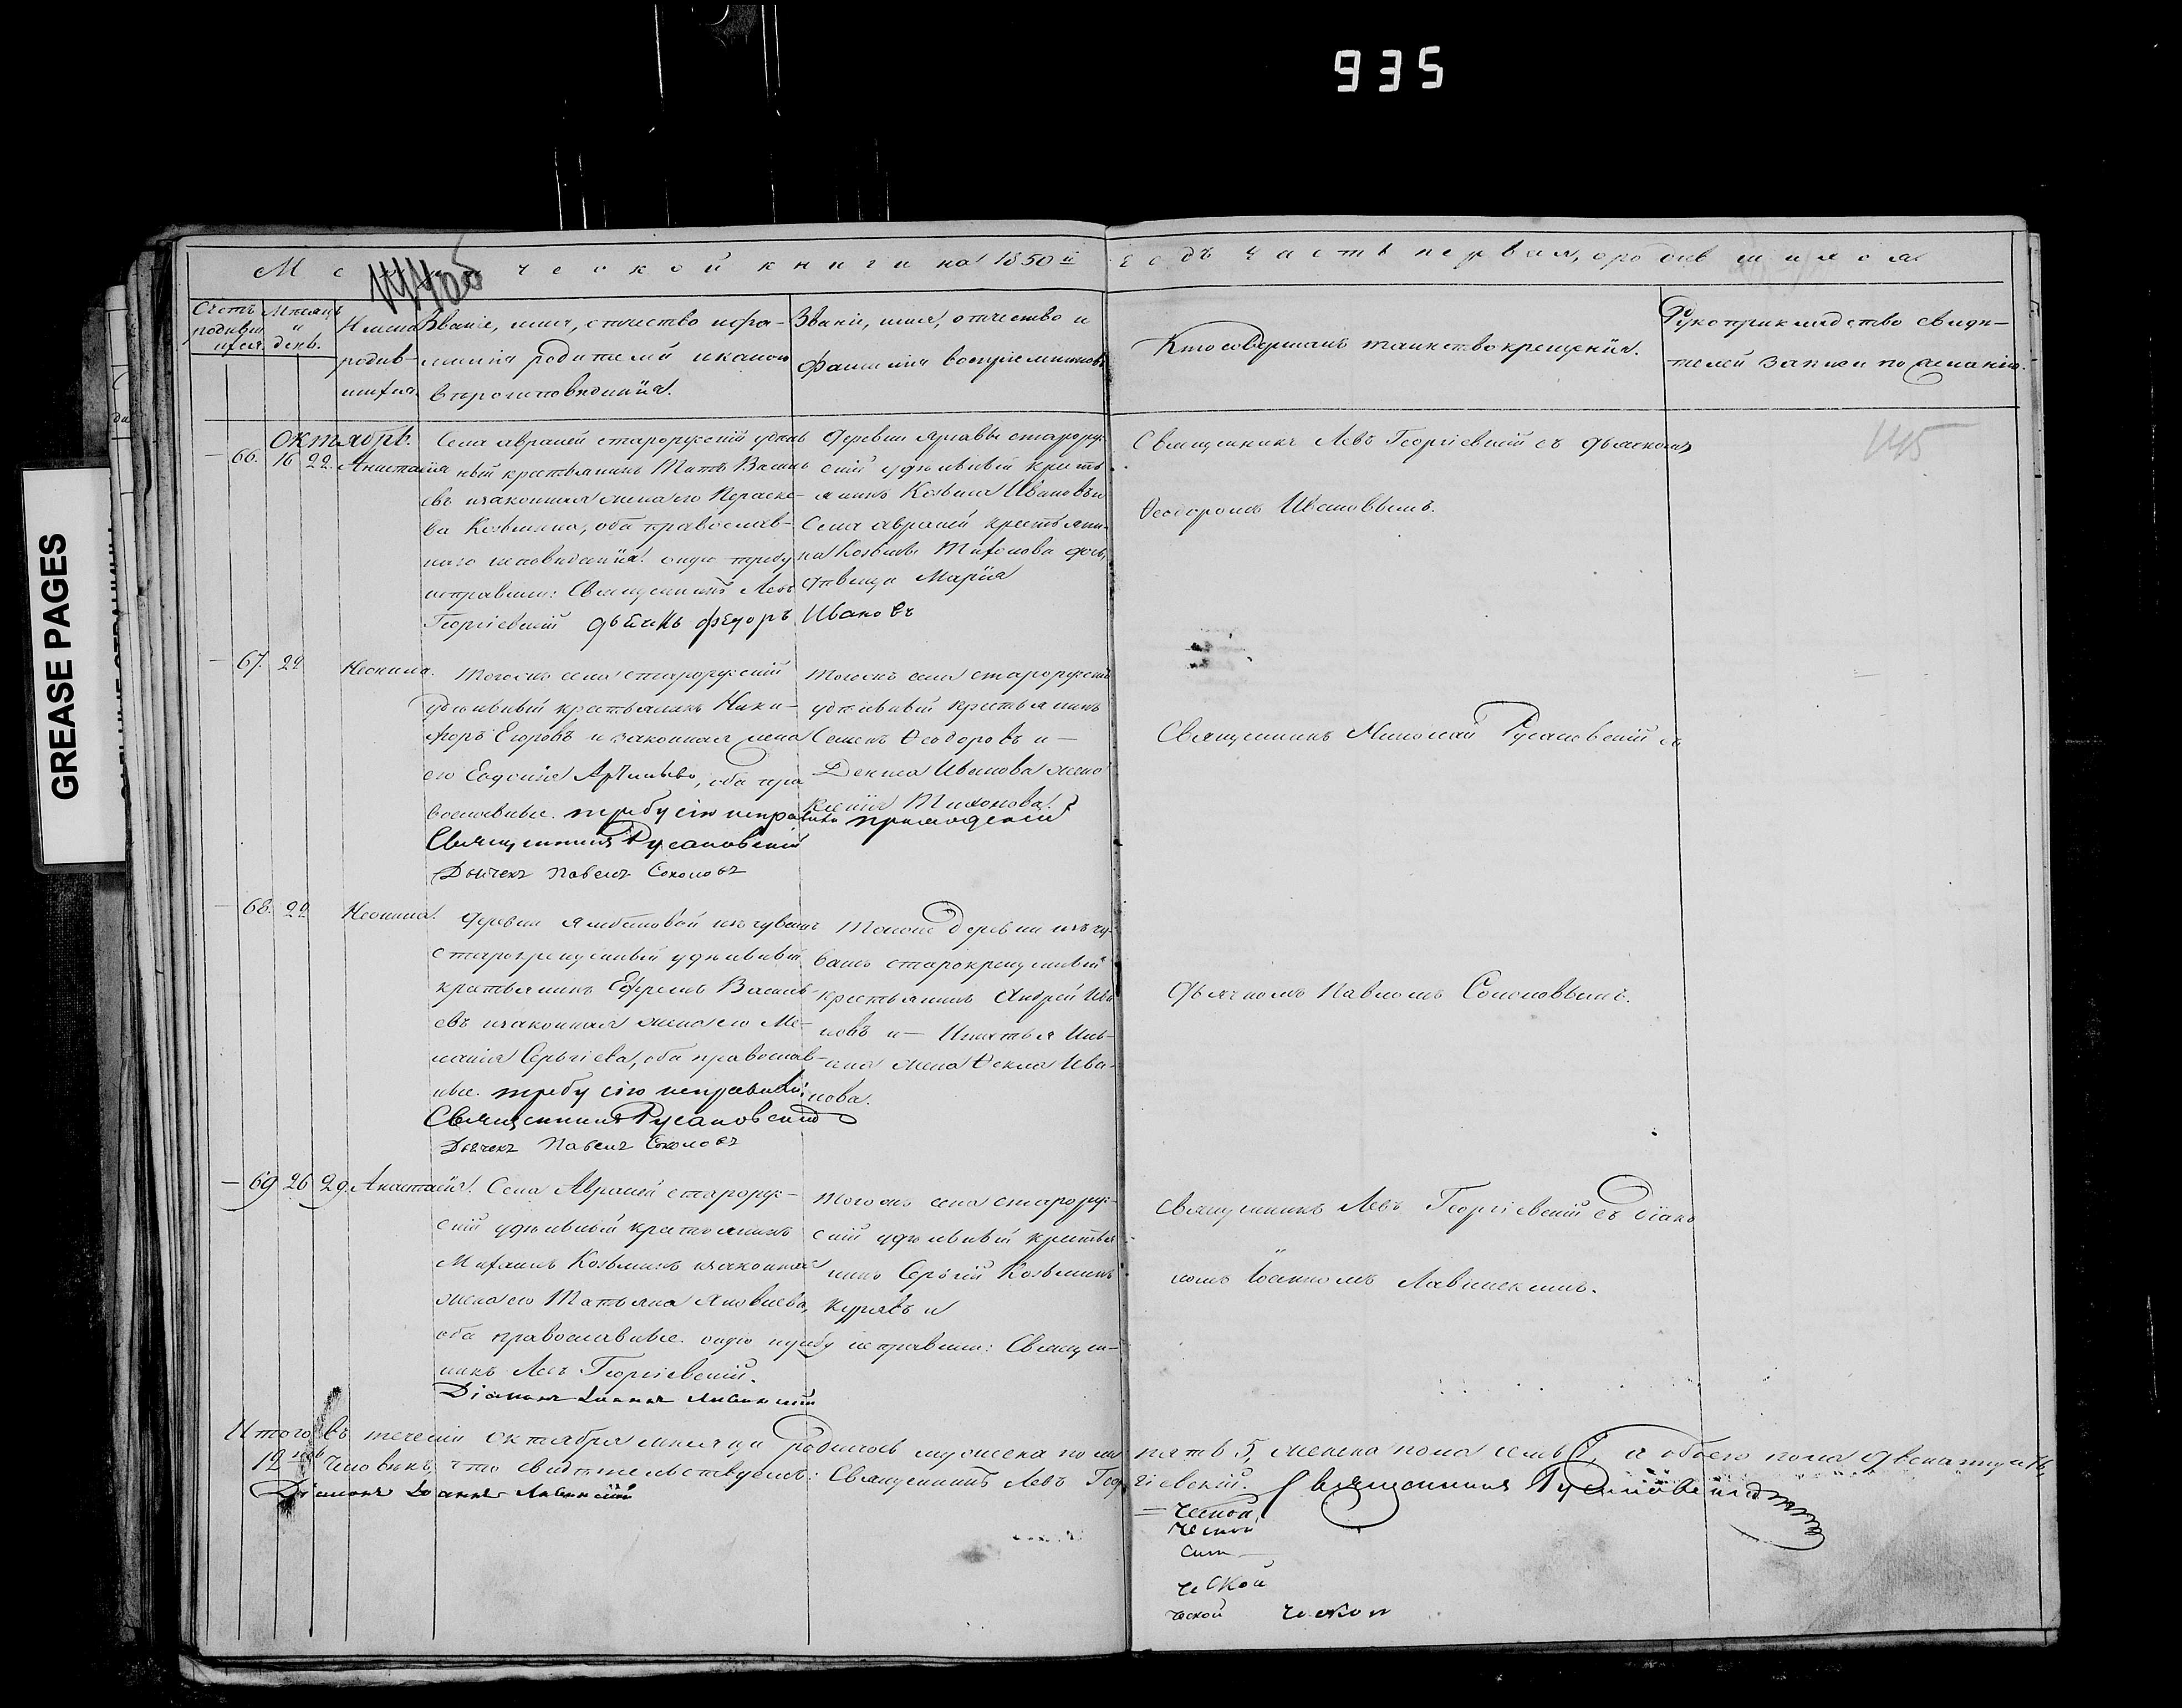 935
GREASE PAGES
144 об
145
М е т р и ч е с к о й к н и г и на 1850 й годъ часть первая, о родившихся
Счетъ родившихся.
Мѣсяцъ и день.
Имена родившихся.
Званіе, имя, отчество и фамилія родителей и какого вѣроисповѣданія.
Званіе, имя, отчество и фамилія воспріемниковъ
Кто совершалъ таинство крещенія.
Рукоприкладство свидѣтелей записи по желанію.
Октябрь.
66. 16 22. Анастасія
Села Авралей старорусскій удѣль-
ный крестьянинъ Титъ Василь-
евъ и законная жена его Параске-
ва Козьмина, оба православ-
наго исповѣданія. оную требу
исправили: Священникъ Левъ
Георгіевскій дьячекъ Федоръ Ивановъ
Деревни старорус-
скій удѣльный кресть-
янинъ Козьма Ивановъ и
Села Авралей крестьяни-
на Козьмы Тихонова дочь,
дѣвица Марія
Священникъ Левъ Георгіевскій съ дьячкомъ
Ѳеодоромъ Ивановымъ.
67. 22 Неонила.
Тогожъ села старорусскій
удѣльный крестьянинъ Ники-
форъ Егоровъ и законная жена
его Евдокія, оба пра-
вославные. требу сію исправили
Священникъ Русановскій
Дьячекъ Павелъ Соколовъ
Тогожъ села старорусскій
удѣльный крестьянинъ
Семенъ Ѳеодоровъ и
Дениса Иванова жена
Ксенія Тихонова.
Священникъ Николай Русановскій съ
68. 22 Неонила.
Деревни изъ чувашъ
старокрещенный удѣльный
крестьянинъ Ефремъ Василь-
евъ и законная жена его Ме-
ланія Сергіева, оба православ-
ные. требу сію исправили:
Священникъ Русановскій
Дьячекъ Павелъ Соколовъ
Тойже деревни изъ чу-
вашъ старокрещенный
крестьянинъ Андрей Ива-
новъ и Игнатья Иль-
ина жена Ѳекла Ива-
нова.
Дьячкомъ Павломъ Соколовымъ.
69 26 29. Анастасія.
Села Авралей старорус-
скій удѣльный крестьянинъ
Михаилъ Козьминъ и законная
жена его Татьяна Яковлева,
оба православные. оную требу исправили: Священ-
никъ Левъ Георгіевскій.
Діаконъ Іоаннъ
Тогожъ села старорус-
скій удѣльный крестья-
нинъ Сергій Козьминъ
и
Священникъ Левъ Георгіевскій съ діако-
номъ Іоанномъ
Итого въ теченіи октября мѣсяца родилось мужеска пола пять 5, женска пола семь 7, а обоего пола двенадцать
12 человѣкъ, что свидѣтельствуемъ: Священникъ Левъ Георгіевскій. Священникъ Русановскій
Діаконъ Іоаннъ
ческой
ческой
ческой
ческой ческой